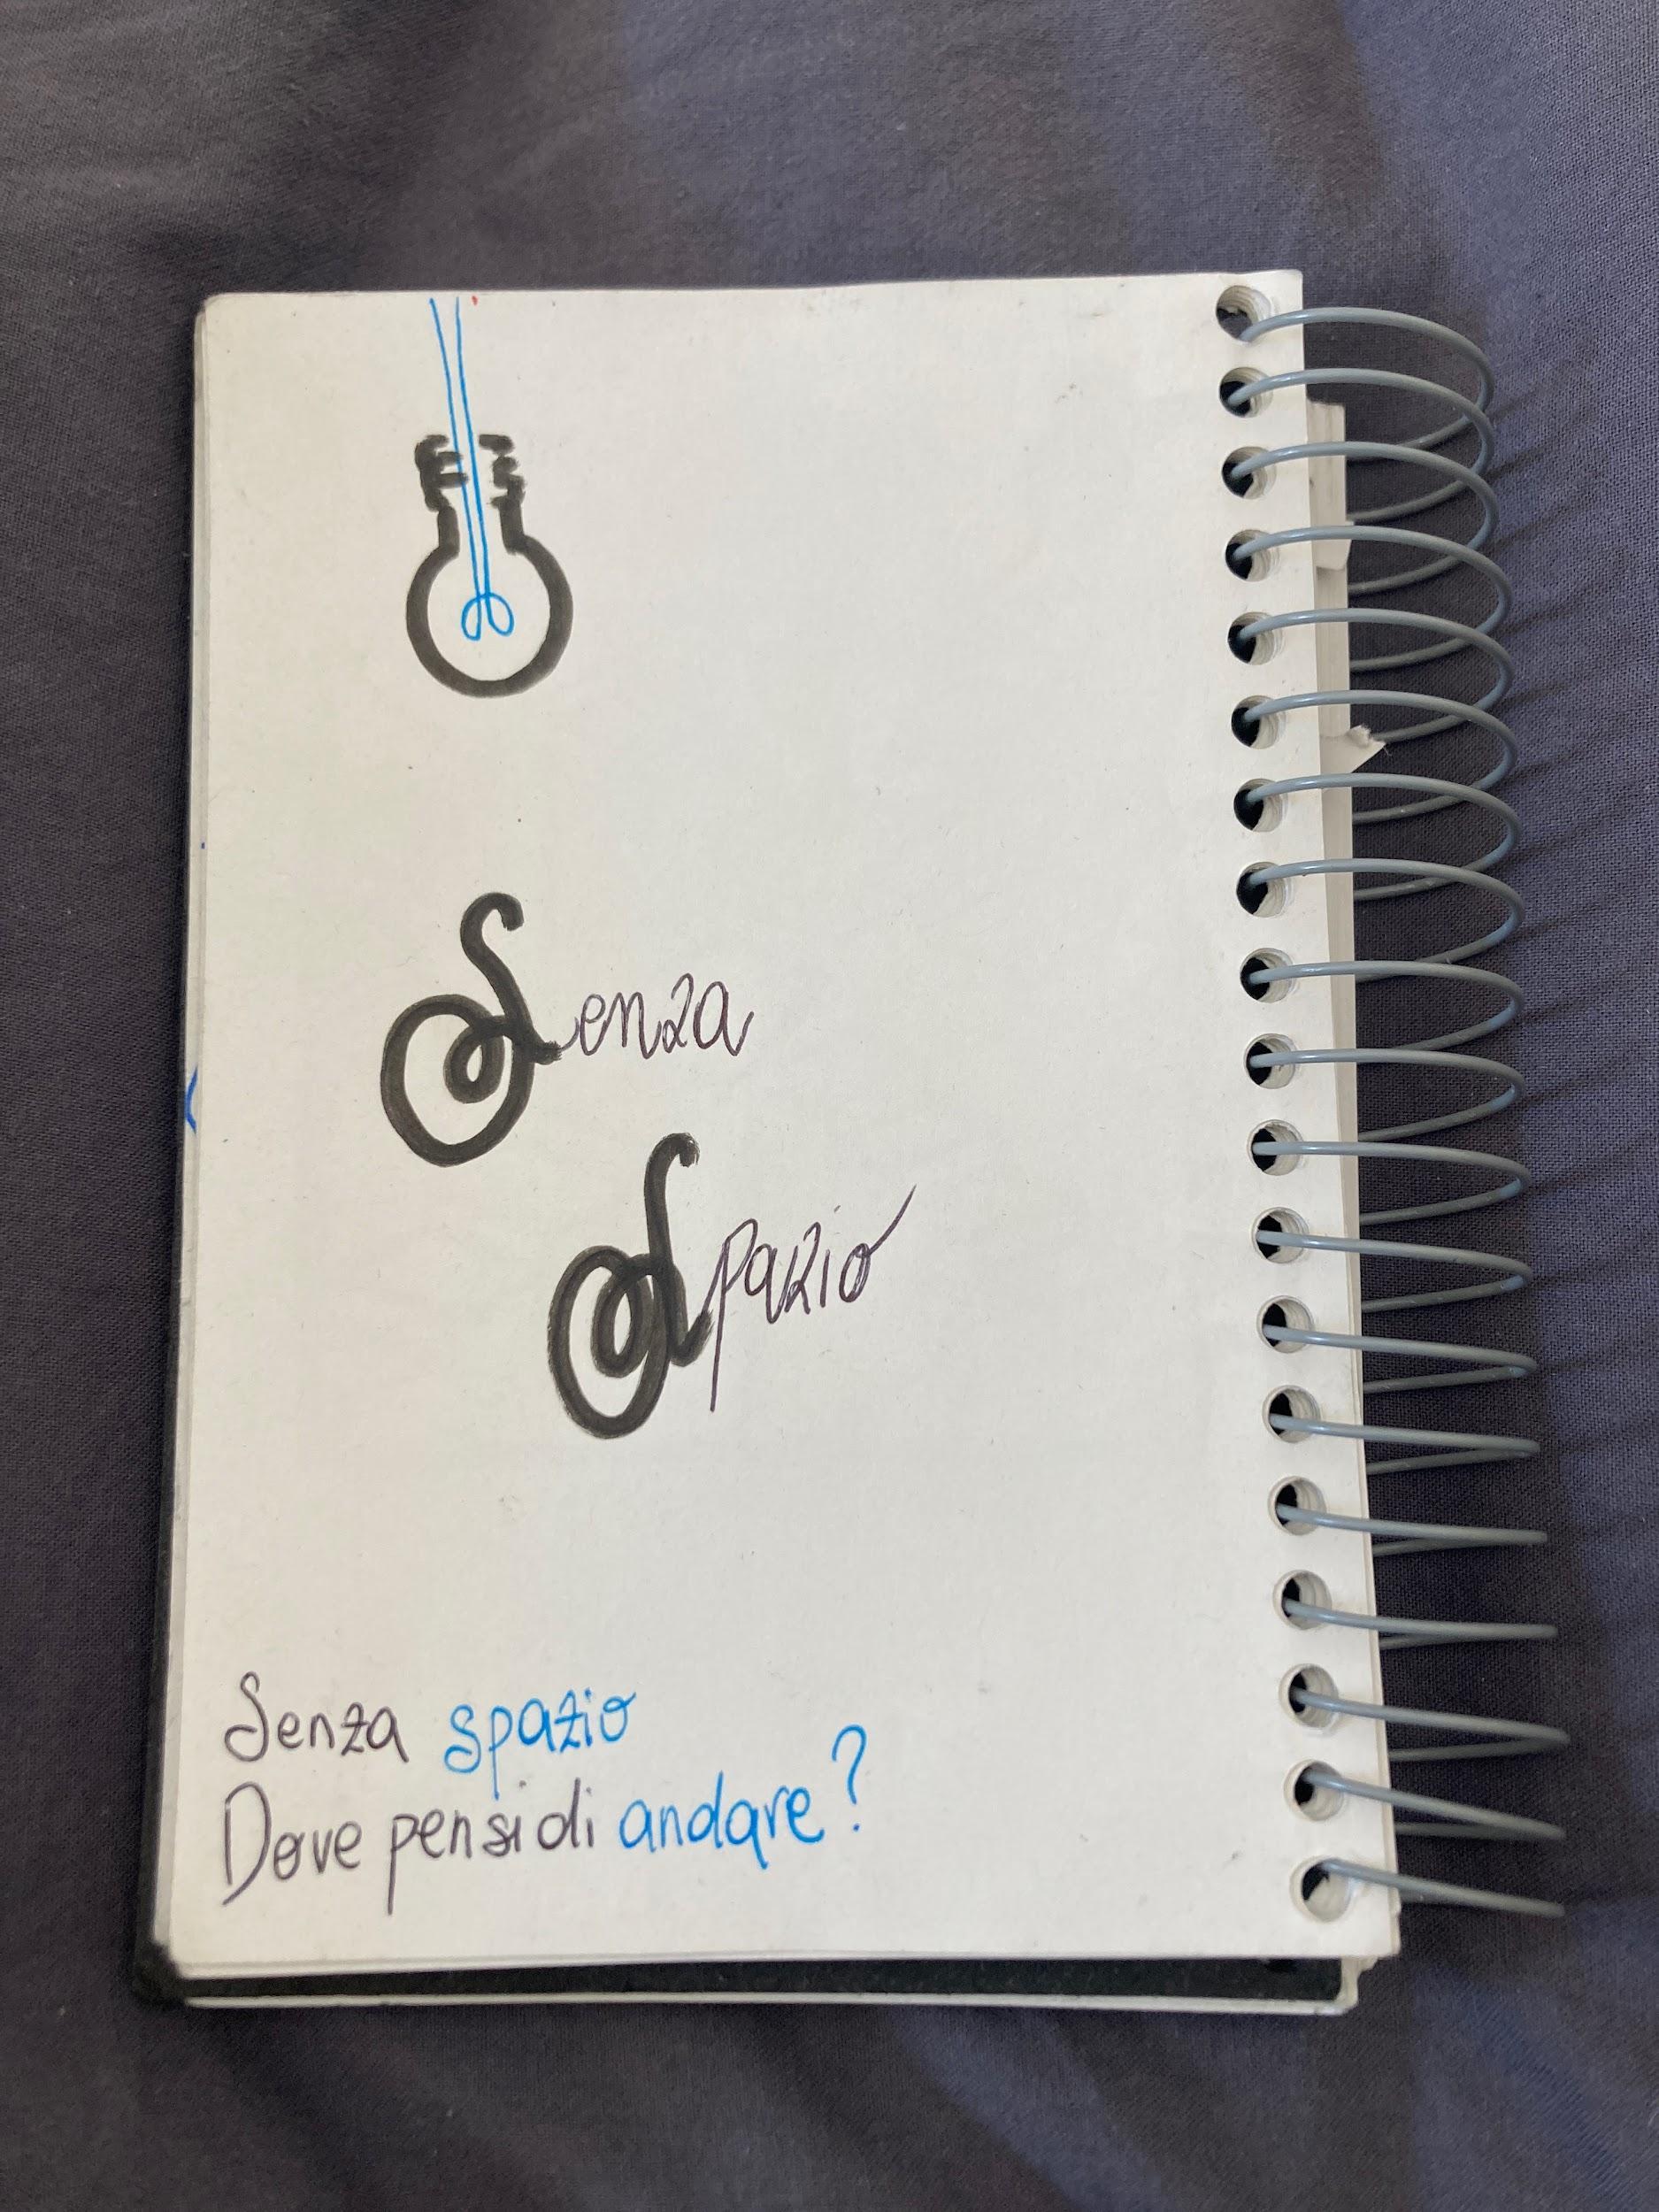 Senza
Spazio
Senza spazio
Dove pensi di andare?